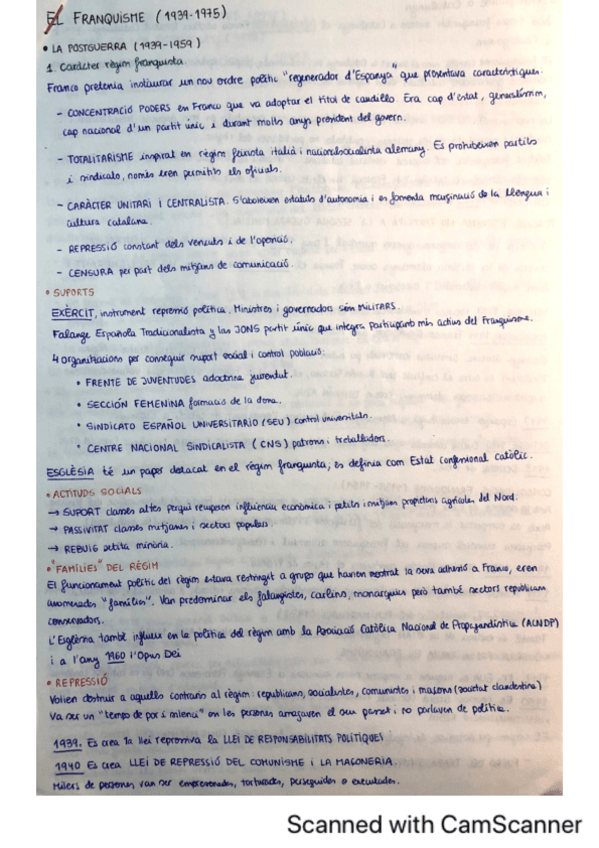 EL FRANQUISME (1939-1975)
• LA POSTGUERRA (1939-1959)
1. Caràcter règim franquista
Franco pretenia instaurar un nou ordre polític "regenerador d'Espanya" que presentava característiques.
- CONCENTRACIÓ PODERS en Franco que va adoptar el títol de caudillo. Era cap d'estat, generalíssim,
cap nacional d'un partit únic i durant molts anys president del govern.
- TOTALITARISME inspirat en règim feixista italià i nacionalsocialista alemany. Es prohibeixen partits
i sindicats, només eren permitits els oficials.
- CARÀCTER UNITARI I CENTRALISTA. S'aboleixen estatuts d'autonomia i es fomenta marginació de la llengua i
cultura catalana.
- REPRESSIÓ constant dels vençuts i de l'oposició.
- CENSURA per part dels mitjans de comunicació.
• SUPORTS
EXÈRCIT, instrument repressió política. Ministres i governadors són MILITARS.
Falange Española Tradicionalista y las JONS partit únic que integra participants més actius del franquisme.
4 organitzacions per conseguir suport social i control població:
• FRENTE DE JUVENTUDES adoctrina juventut.
• SECCIÓN FEMENINA formació de la dona.
• SINDICATO ESPAÑOL UNIVERSITARIO (SEU) control universitats.
• CENTRE NACIONAL SINDICALISTA (CNS) patrons i treballadors.
ESGLÈSIA té un paper destacat en el règim franquista; es definia com Estat confesional catòlic.
• ACTITUDS SOCIALS
→ SUPORT classes altes perquè recuperen influència econòmica i petits i mitjans propietaris agrícoles del Nord.
→ PASSIVITAT classes mitjanes i sectors populars
→ REBUIG petita minoria.
• "FAMÍLIES" DEL RÈGIM
El funcionament polític del règim estava restringit a grups que havien mostrat la seva adhesió a Franco, eren
anomenades "famílies". Van predominar els falangistes, carlins, monàrquics però també sectors republicans
conservadors.
L'Església també influeix en la política del règim amb la Asociació Catòlica Nacional de Propagandistas (ACNDP)
i a l'any 1960 l'Opus Dei
• REPRESSIÓ
Volien destruir a aquells contraris al règim: republicans, socialistes, comunistes i masons (societat clandestina)
Va ser un "temps de por i silenci" on les persones amagaven el seu passat i no parlaven de política.
1939. Es crea la llei repressiva la LLEI DE RESPONSABILITATS POLÍTIQUES
1940 Es crea LLEI DE REPRESSIÓ DEL COMUNISME I LA MAÇONERIA.
Milers de persones van ser empresonades, torturades, perseguides o executades.
Scanned with CamScanner